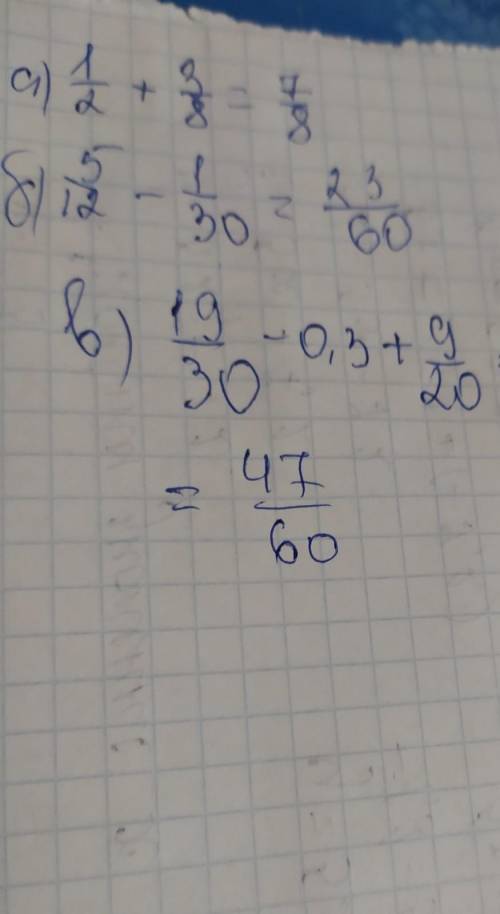 а) 1/2 + 3/8 = 7/8
б) 5/12 - 1/30 = 23/60
в) 19/30 - 0,3 + 9/20 =
= 47/60